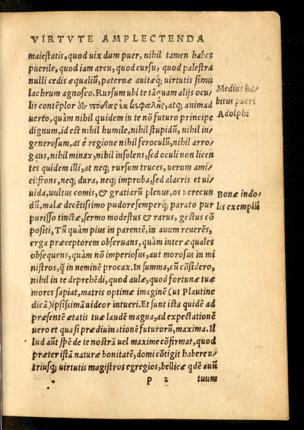 VIRTVTE AMPLECTENDA
maiestatis, quod uix dum puer, nihil tamen habes
puerile, quod iam arcu, quod cursu, quod palestra
nulli cedis æqualiũ, paternæ auitæq; uirtutis simu
lachrum agnosco. Rursum ubi te tãquam alijs ocu
lis contẽplor
atq; animad
uerto, quàm nihil quidem in te nõ futuro principe
dignum, id est nihil humile, nihil stupidũ, nihil in/
generosum, at è regione nihil feroculũ, nihil arro/
gans, nihil minax, nihil insolens, sed oculi non licen
tes quidem illi, at neq; rursum truces, uerum ami/
ci: frons, neq; dura, neq; improba, sed alacris et ui/
uida, uultus comis, & gratiarũ plenus, os uerecun
dũ, malæ decẽtissimo pudore semperq; parato pur
purisso tinctæ, sermo modestus & rarus, gestus cõ
positi, Tũ quàm pius in parentẽ, in auum reuerẽs,
erga præceptorem obseruans, quàm inter æquales
obsequens, quàm nõ imperiosus, aut morosus in mi
nistros, q̃ in neminẽ procax. In summa, cũ cõsidero,
nihil in te deprehẽdi, quod aulæ, quod fortunæ tuæ
mores sapiat, matris optimæ imaginẽ (ut Plautine
dicã) ipsissimã uideor intueri. Et sunt ista quidẽ ad
præsentẽ ætatis tuæ laudẽ magna, ad expectationẽ
uero et quasi prædiuinationẽ futurorũ, maxima. Il
lud aũt spẽ de te nostrã uel maxime cõfirmat, quod
præter istã naturæ bonitatẽ, domi cõtigit habere u/
triusq; uirtutis magistros egregios, bellicæ qdẽ auũ
P 2 tuum
Medius ha/
bitus pueri
Adolphi
Bonæ indo
lis exemplũ